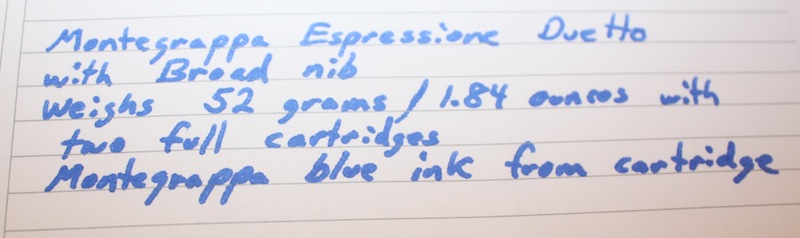 Montegrappa Espressione Duetto
with Broad nib
weighs 52 grams / 1.84 ounces with
two full cartridges
Montegrappa blue ink from cartridge